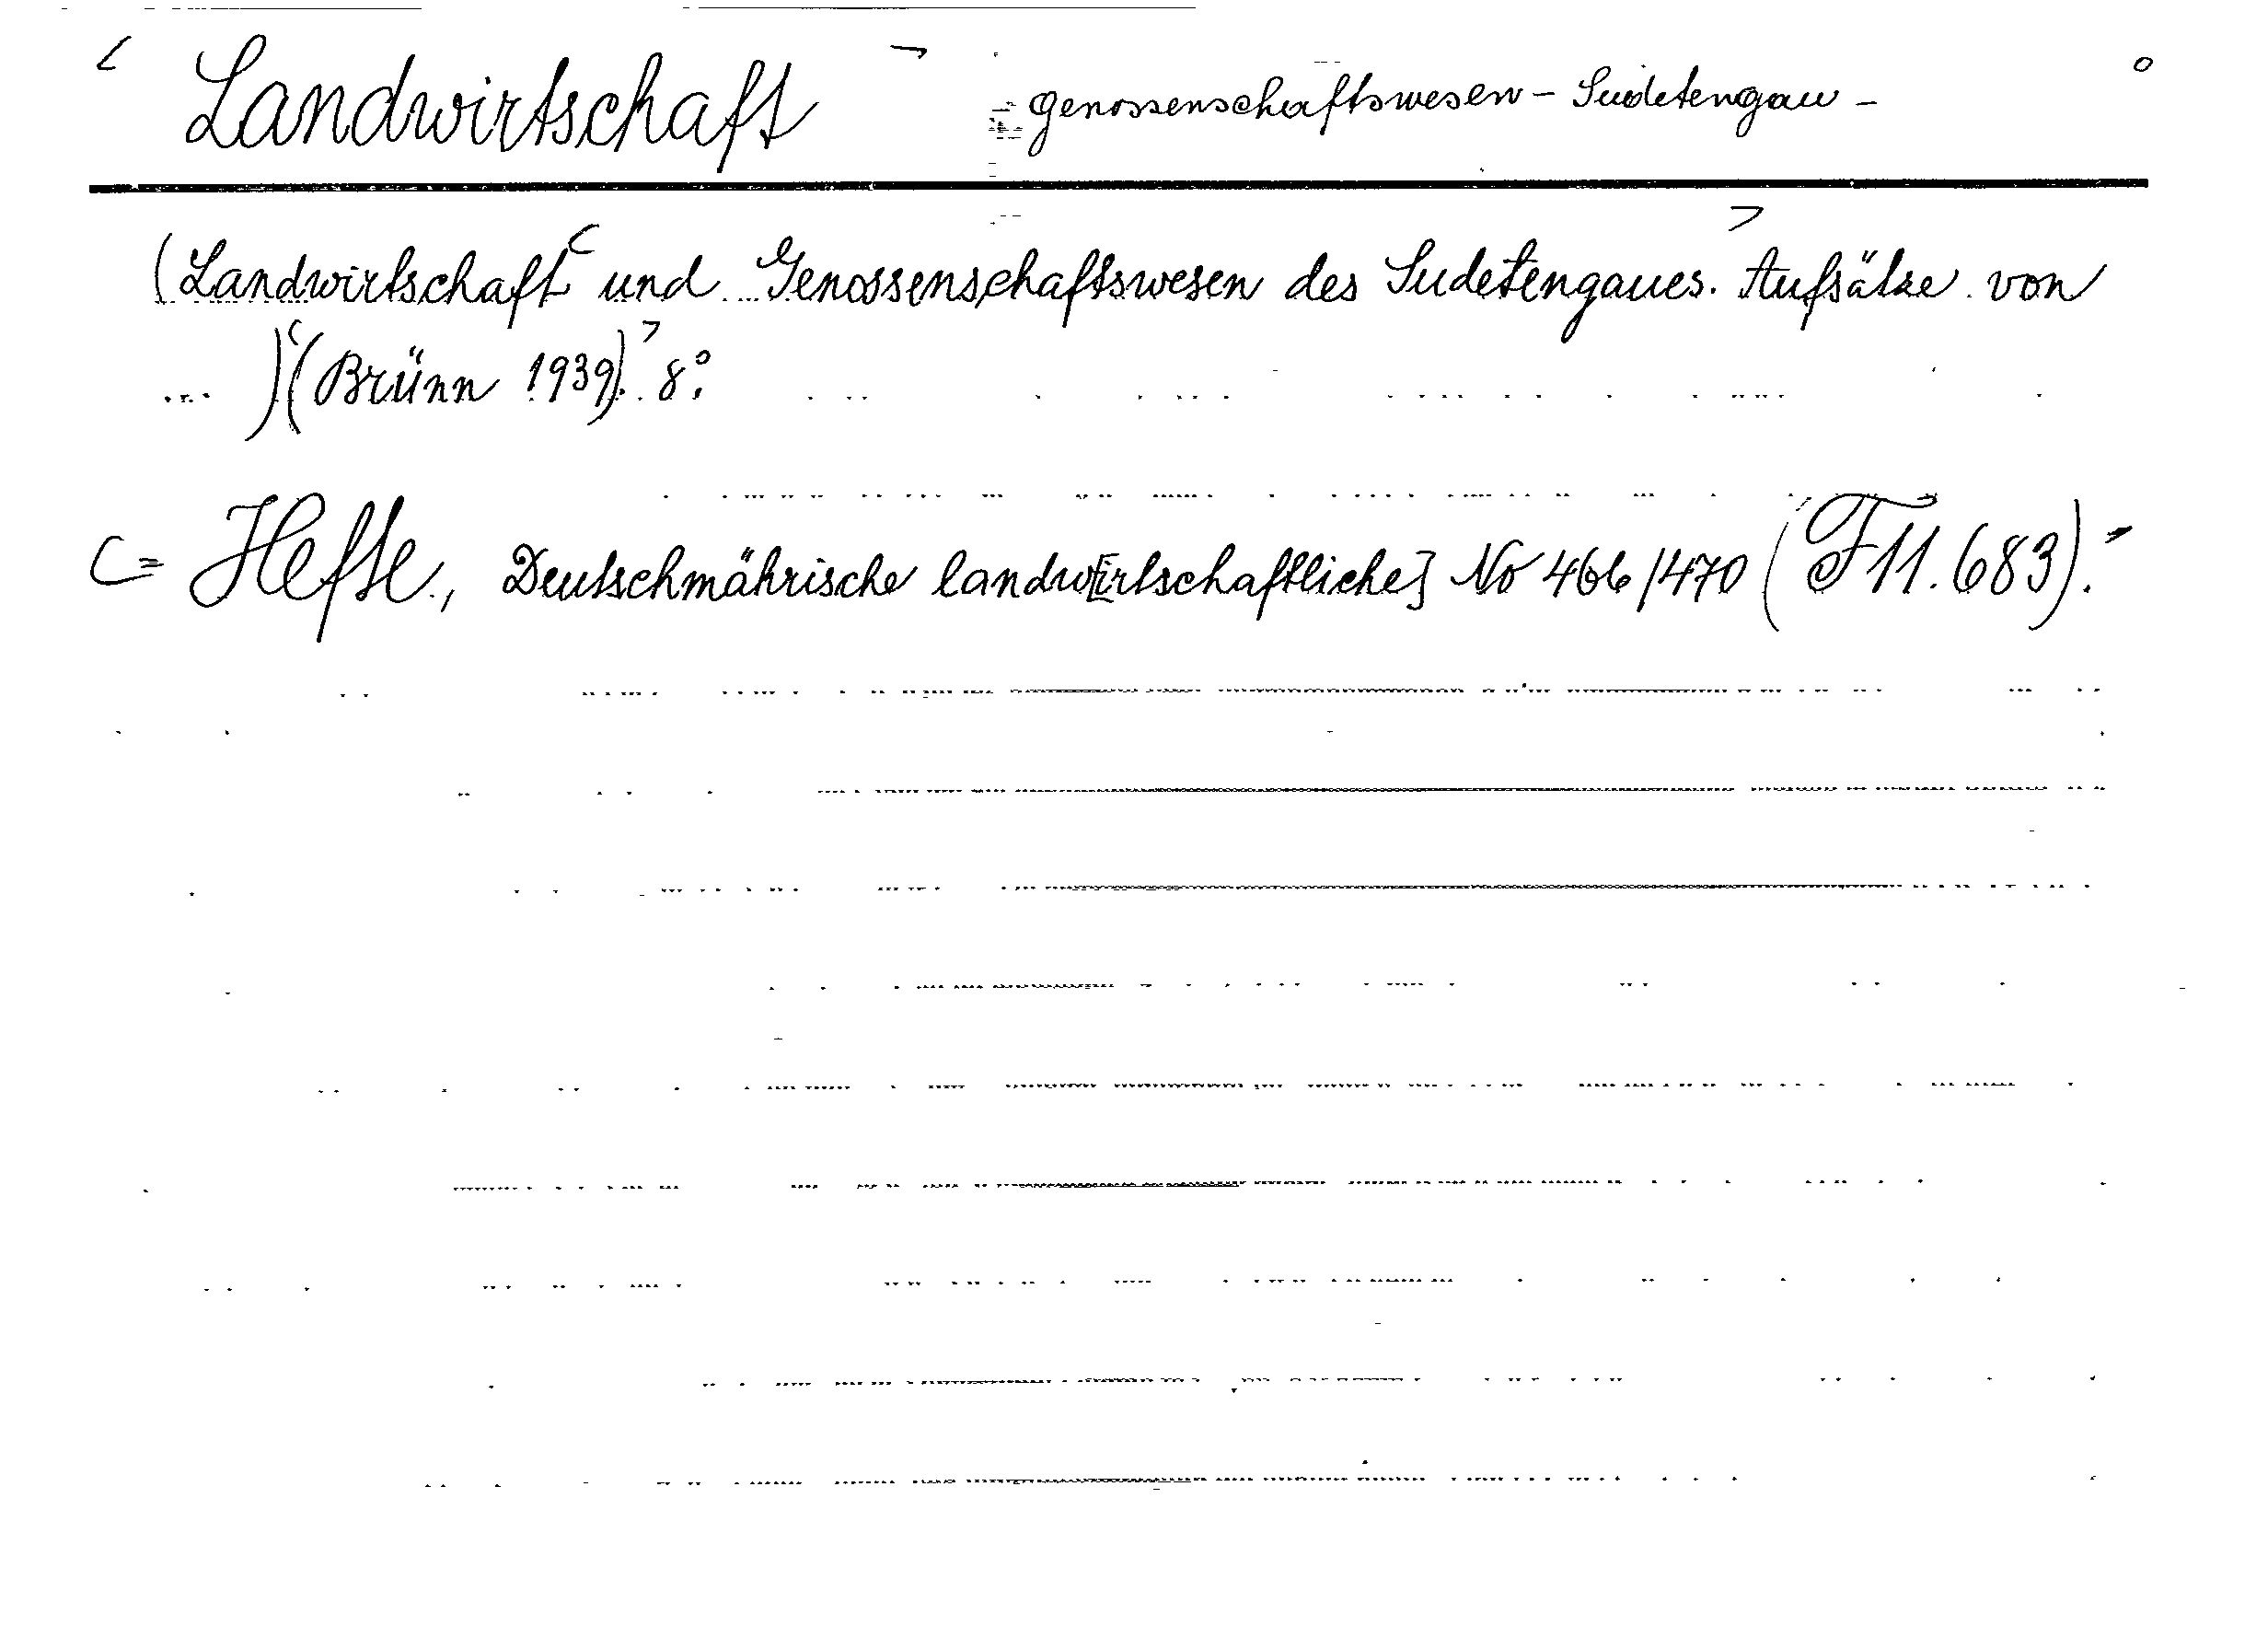 Landwirtschaft - genossenschaftswesen - Sudetengau -
(Landwirtschaft und Genossenschaftswesen des Sudetengaues. Aufsätze von
... ) (Brünn 1939). 8°.
= Hefte, Deutschmährische landw[irtschaftliche] No 466/470 (F 11.683).